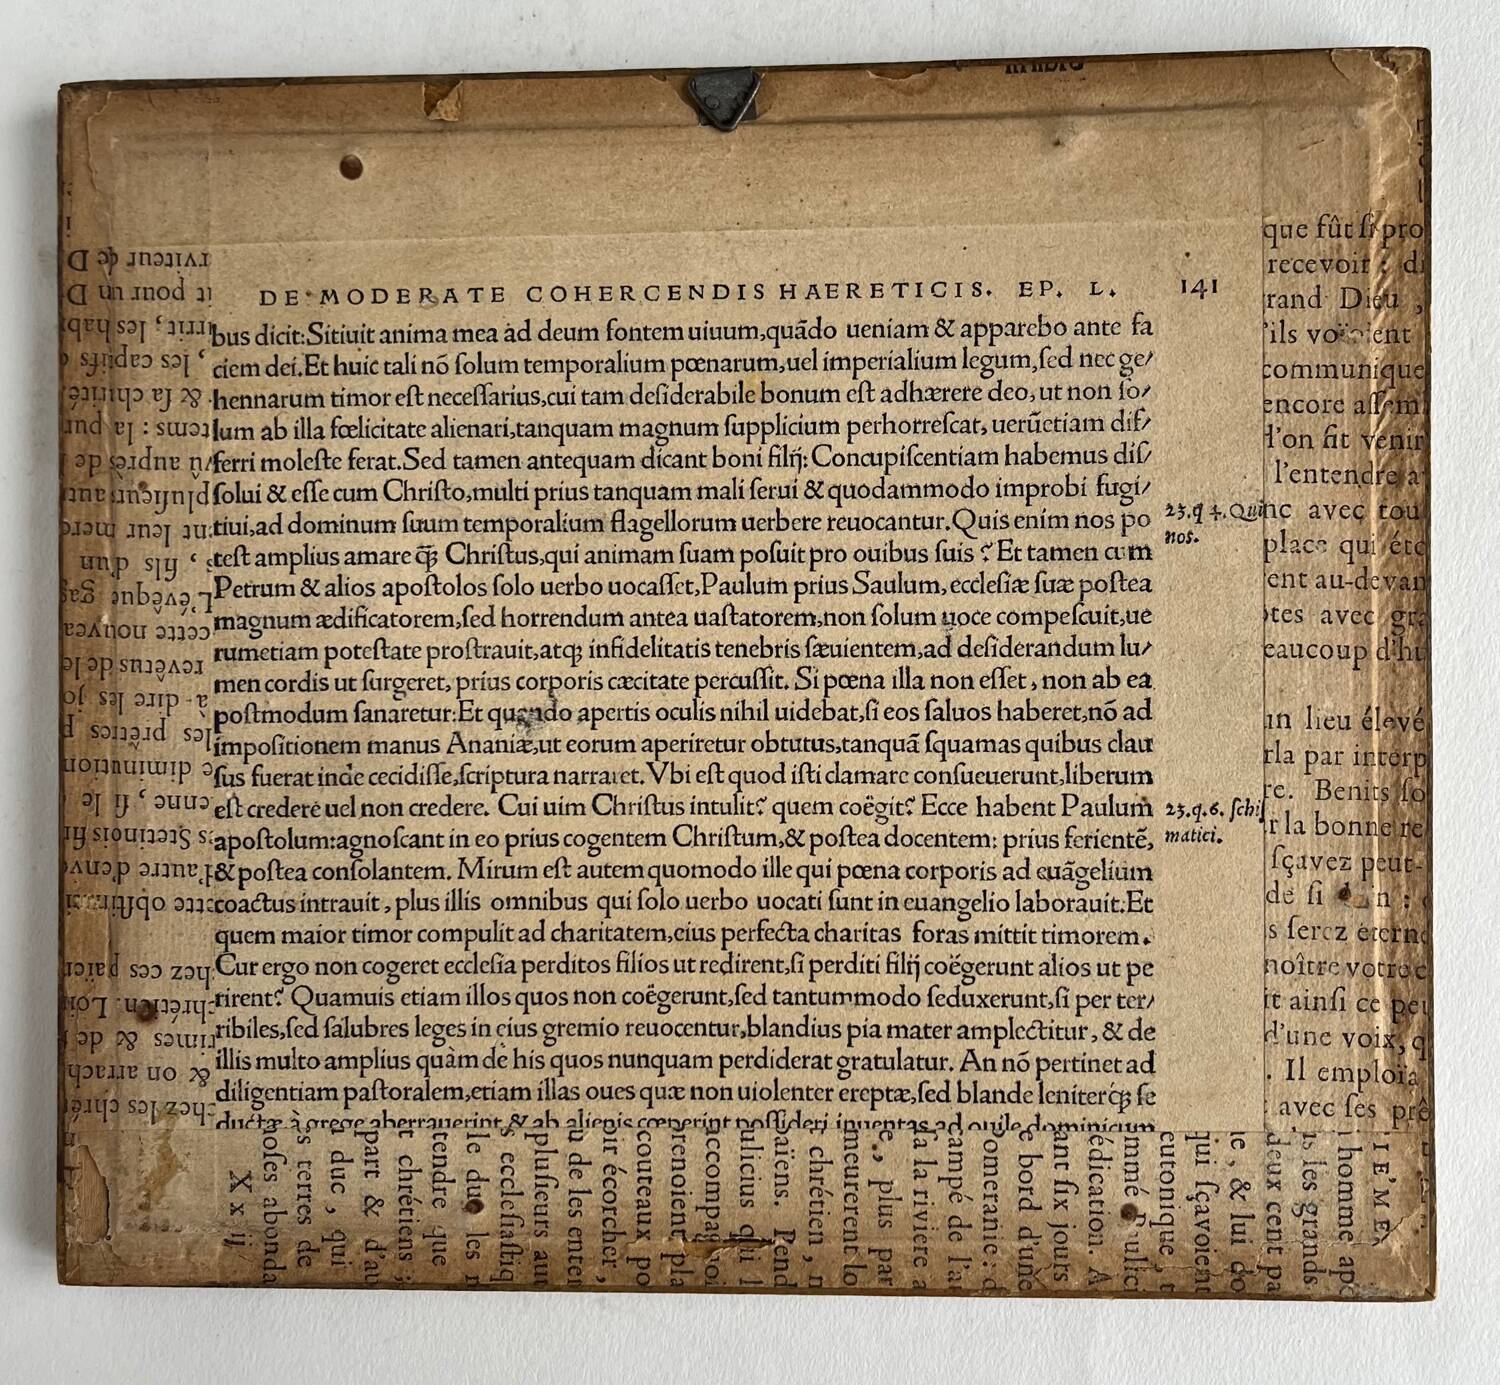 DE MODERATE COHERCENDIS HAERETICIS. EP. L. 141
bus dicit:Sitiuit anima mea ad deum fontem uiuum,quãdo ueniam & apparebo ante fa
ciem dei.Et huic tali nõ ſolum temporalium pœnarum,uel imperialium legum,ſed nec ge/
hennarum timor eſt neceſſarius,cui tam deſiderabile bonum eſt adhærere deo,ut non ſo/
lum ab illa fœlicitate alienari,tanquam magnum ſupplicium perhorreſcat, uerũetiam dif/
ferri moleſte ferat.Sed tamen antequam dicant boni filij: Concupiſcentiam habemus diſ/
ſolui & eſſe cum Chriſto,multi prius tanquam mali ſerui & quodammodo improbi fugi/
tiui,ad dominum ſuum temporalium flagellorum uerbere reuocantur.Quis enim nos po
teſt amplius amare q̃ꝫ Chriſtus,qui animam ſuam poſuit pro ouibus ſuis? Et tamen cum
Petrum & alios apoſtolos ſolo uerbo uocaſſet,Paulum prius Saulum, eccleſiæ ſuæ poſtea
magnum ædificatorem,ſed horrendum antea uaſtatorem,non ſolum uoce compeſcuit,ue
rumetiam poteſtate proſtrauit,atqꝫ infidelitatis tenebris ſæuientem,ad deſiderandum lu/
men cordis ut ſurgeret, prius corporis cæcitate percuſſit. Si pœna illa non eſſet, non ab ea
poſtmodum ſanaretur:Et quando apertis oculis nihil uidebat,ſi eos ſaluos haberet,nõ ad
impoſitionem manus Ananiæ,ut eorum aperiretur obtutus,tanquã ſquamas quibus clau
ſus fuerat inde cecidiſſe,ſcriptura narraret.Vbi eſt quod iſti clamare conſueuerunt,liberum
eſt credere uel non credere. Cui uim Chriſtus intulit? quem coëgit? Ecce habent Paulum
apoſtolum:agnoſcant in eo prius cogentem Chriſtum,& poſtea docentem: prius ferientẽ,
& poſtea conſolantem. Mirum eſt autem quomodo ille qui pœna corporis ad euãgelium
coactus intrauit, plus illis omnibus qui ſolo uerbo uocati ſunt in euangelio laborauit:Et
quem maior timor compulit ad charitatem,eius perfecta charitas foras mittit timorem.
Cur ergo non cogeret eccleſia perditos filios ut redirent,ſi perditi filij coëgerunt alios ut pe
rirent? Quamuis etiam illos quos non coëgerunt,ſed tantummodo ſeduxerunt,ſi per ter/
ribiles,ſed ſalubres leges in eius gremio reuocentur,blandius pia mater amplectitur, & de
illis multo amplius quàm de his quos nunquam perdiderat gratulatur. An nõ pertinet ad
diligentiam paſtoralem,etiam illas oues quæ non uiolenter ereptæ,ſed blande leniterqꝫ ſe
ductæ à grege aberrauerint & ab alienis cœperint poſſideri inuentas ad ouile dominicum
23.q 4. Qui
nos.
23.q.6. ſchiſ
matici.
que fût ſi pro
recevoir : di
rand Dieu ,
'ils voient
communique
encore aſſem
l'on fit venir
l'entendre a
nc avec tou
place qui éto
ent au-devan
tes avec gra
eaucoup d'hu
un lieu élevé
rla par interp
re. Benits ſo
r la bonne re
ſçavez peut-
de ſi n :
s ſerez éterne
noître votre c
it ainſi ce peu
d'une voix, q
. Il emploïa
avec ſes prê
rviteur de D
it pour un D
irrit, les hab
, les captifs
& ſa charité
tems : la pur
auprès de
pluſieurs aut
nt leur merc
, fils d'un
L'évêque ga
cette nouvea
revêtus de
à-dire les jo
les prêtres p
e diminution
enne, ſi le
s Stetinois
l'autre d'env
tte obſtina
hez ces païen
hrétien. Loi
rimes & de
& on arrach
chez les chré
I E'M E
homme apo
s les grands
deux cent pa
ie, & lui do
qui ſçavoient
eutonique, t
mmé Pulici
édication. A
ant ſix jours
e bord d'une
omeranie : d
ampé de l'au
a la riviere a
e., plus par
meurerent lo
chrétien, n
aïens. Pend
ulicius qui l
ccompagnoi
renoient pla
couteaux po
ir écorcher,
u de les enter
pluſieurs aut
s eccleſiaſtiq
le duc les r
tendre que
t chrétiens ;
part & d'au
duc, qui
s terres de
oſes abonda
X x ij